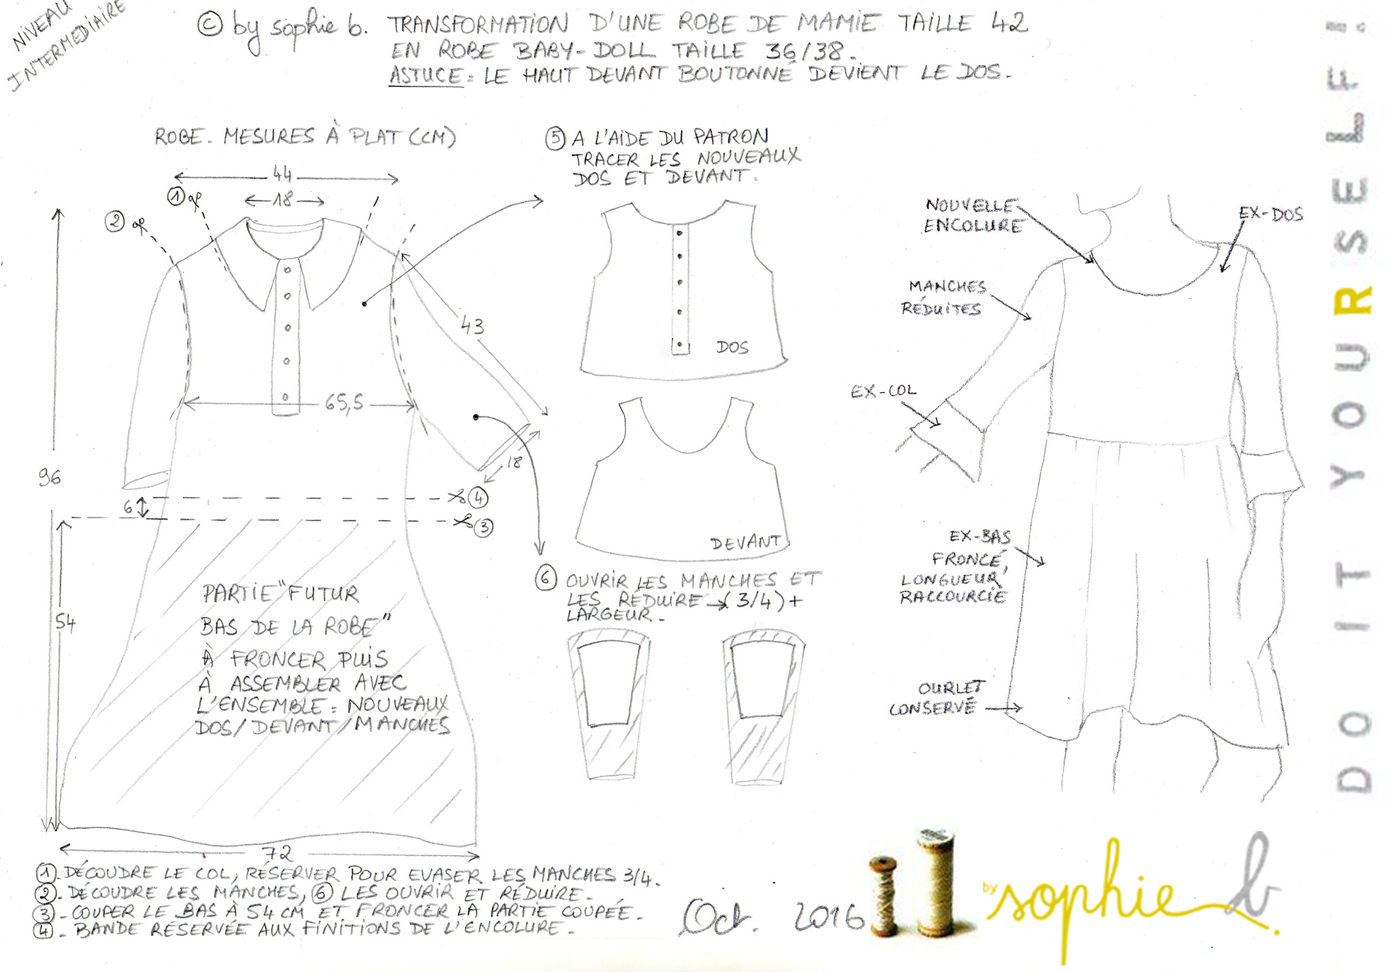 NIVEAU
INTERMEDIAIRE
© by sophie b. TRANSFORMATION D'UNE ROBE DE MAMIE TAILLE 42
EN ROBE BABY-DOLL TAILLE 36/38.
ASTUCE : LE HAUT DEVANT BOUTONNÉ DEVIENT LE DOS.
ROBE. MESURES À PLAT (CM)
44
18
1
2
43
65,5
18
96
6
4
3
54
PARTIE "FUTUR
BAS DE LA ROBE"
À FRONCER PUIS
À ASSEMBLER AVEC
L'ENSEMBLE = NOUVEAUX
DOS/DEVANT/MANCHES
72
5 A L'AIDE DU PATRON
TRACER LES NOUVEAUX
DOS ET DEVANT.
DOS
DEVANT
6 OUVRIR LES MANCHES ET
LES REDUIRE → (3/4) +
LARGEUR.
NOUVELLE
ENCOLURE
EX-DOS
MANCHES
RÉDUITES
EX-COL
EX-BAS
FRONCÉ,
LONGUEUR
RACCOURCIE
OURLET
CONSERVÉ
1. DÉCOUDRE LE COL, RÉSERVER POUR EVASER LES MANCHES 3/4.
2. DÉCOUDRE LES MANCHES, 6 LES OUVRIR ET RÉDUIRE.
3. COUPER LE BAS À 54 CM ET FRONCER LA PARTIE COUPÉE.
4. BANDE RÉSERVÉE AUX FINITIONS DE L'ENCOLURE.
Oct. 2016
by sophie b.
DO IT YOURSELF!